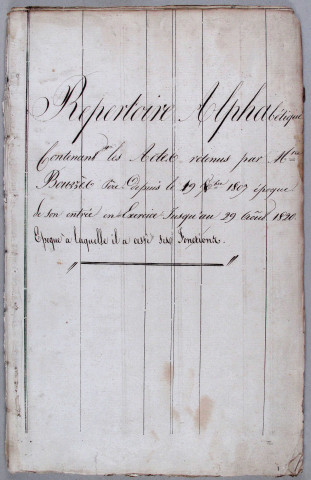 Repertoire Alphabétique
Contenant les Actes retenus par Me
père Depuis le 19 1807 époque
de son entrée en Exercice Jusqu'au 29 Août 1820
Epoque a laquelle il a cessé ses fonctions.